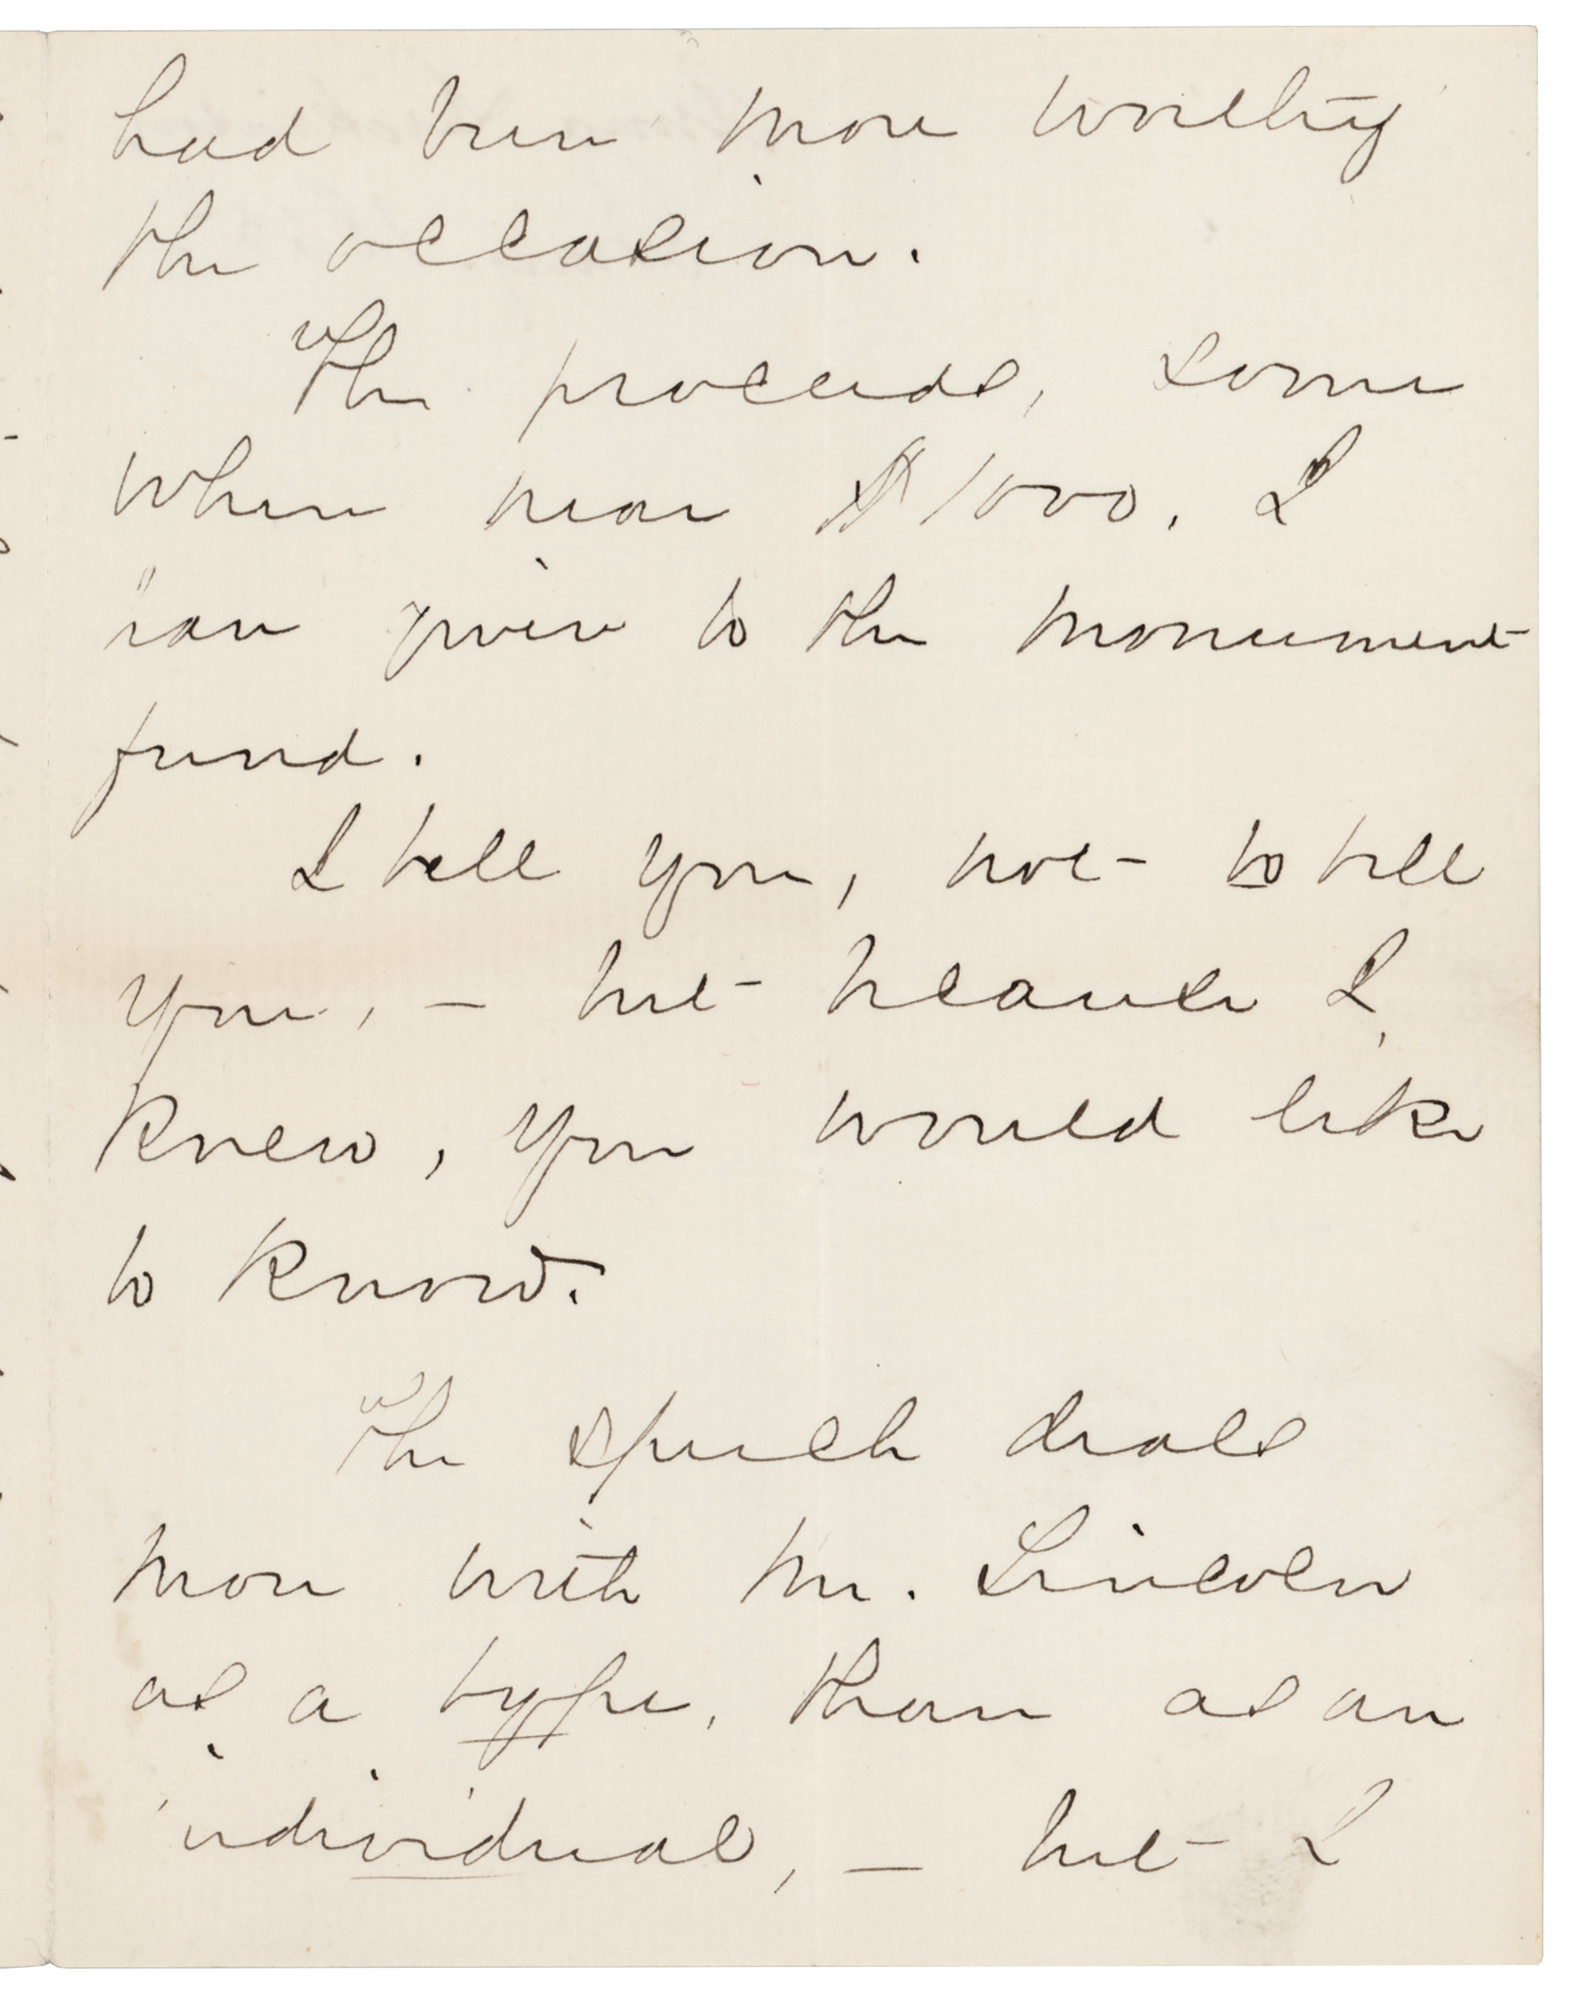 had been more worthy
the occasion.
The proceeds, some
where near $1000, I
have given to the monument
fund.
I tell you, not to tell
you, — but because I
knew, you would like
to know.
The speech deals
more with Mr. Lincoln
as a type, than as an
individual, — but I